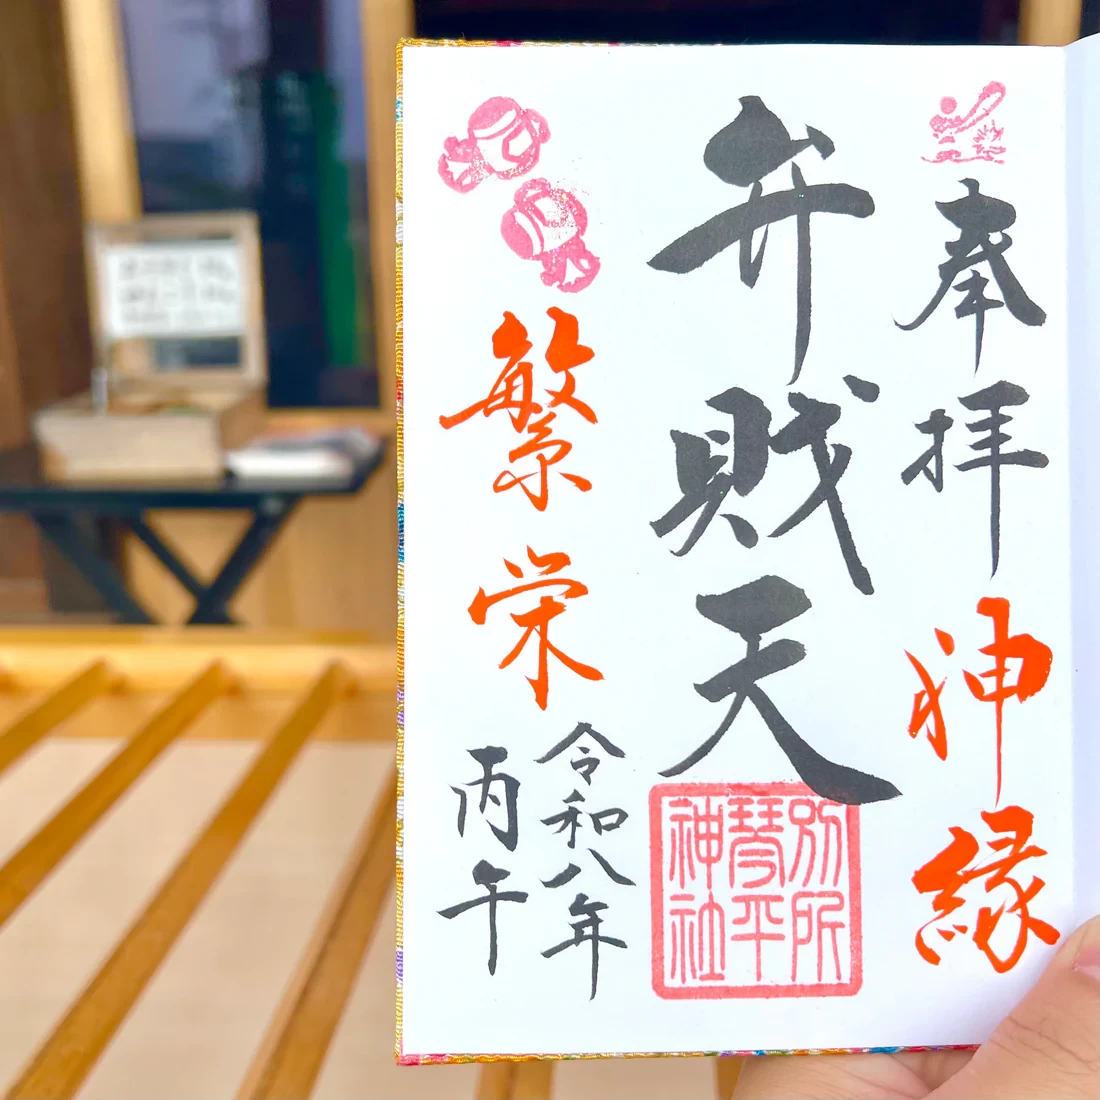 奉拝
神縁
弁財天
別所
琴平
神社
繁栄
令和八年
丙午